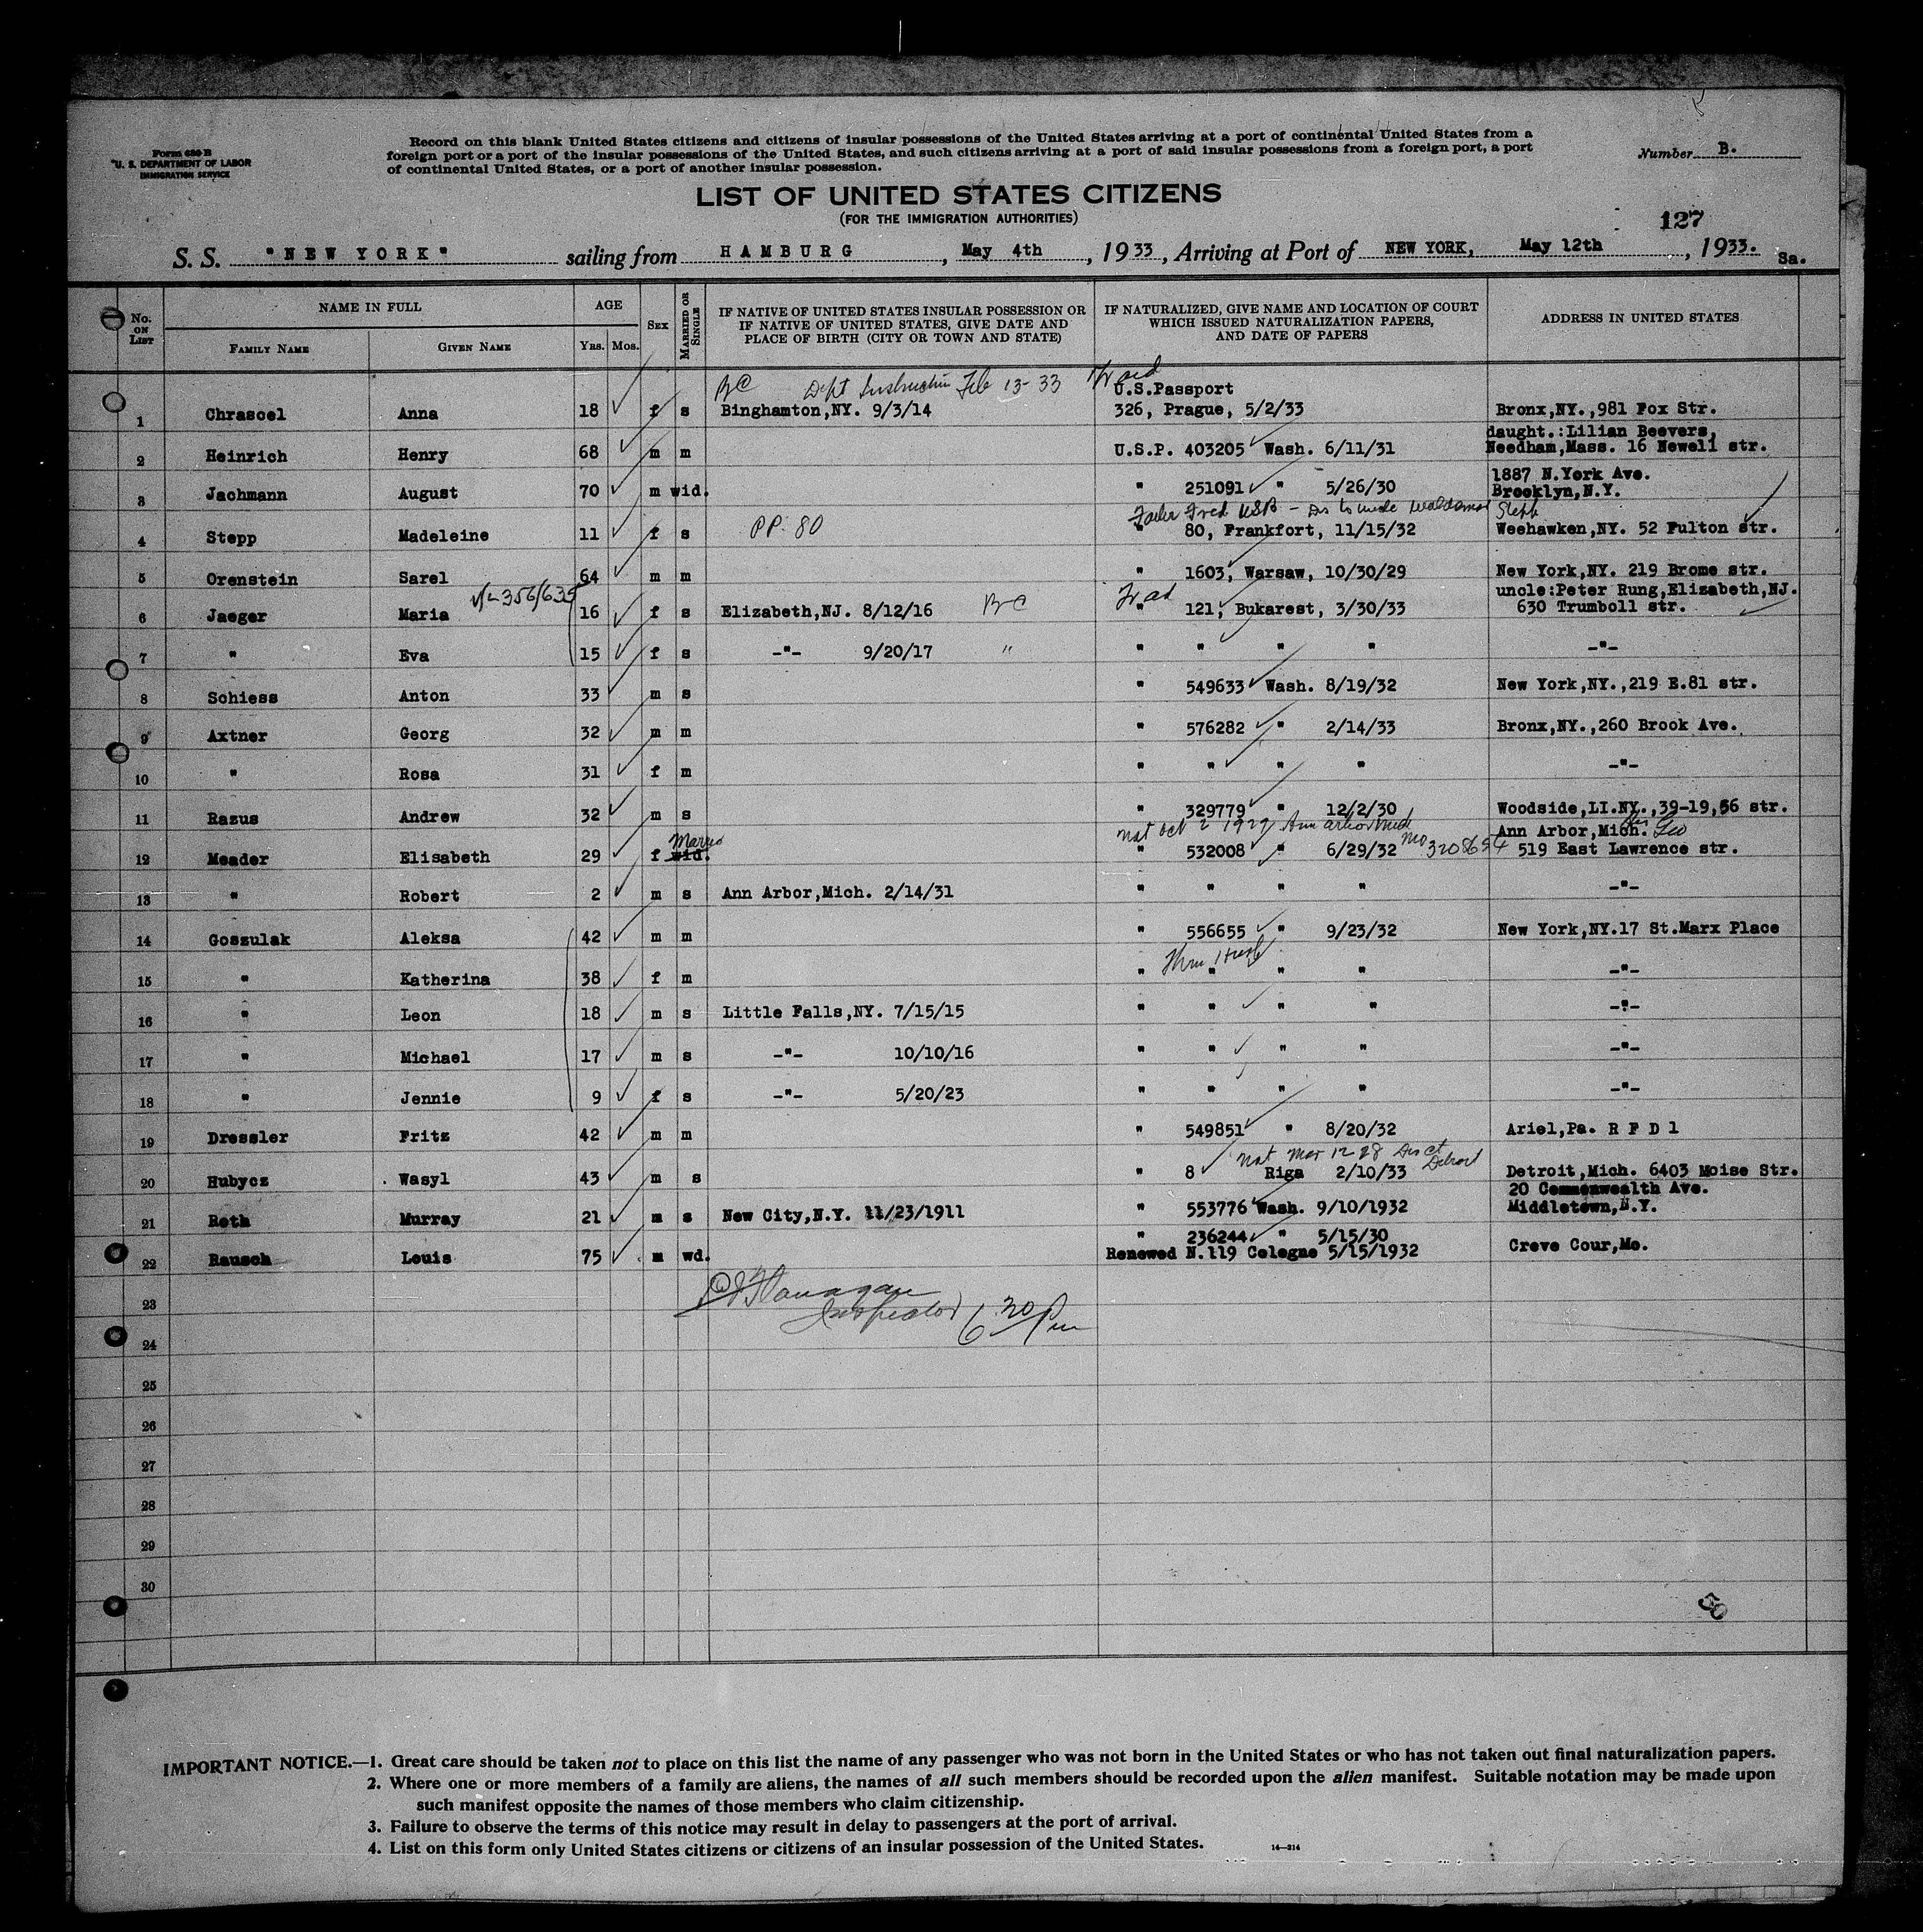 Form 630-B
U. S. DEPARTMENT OF LABOR
IMMIGRATION SERVICE
Record on this blank United States citizens and citizens of insular possessions of the United States arriving at a port of continental United States from a
foreign port or a port of the insular possessions of the United States, and such citizens arriving at a port of said insular possessions from a foreign port, a port
of continental United States, or a port of another insular possession.
Number B.
LIST OF UNITED STATES CITIZENS
(FOR THE IMMIGRATION AUTHORITIES)
127
S. S. "NEW YORK" sailing from HAMBURG, May 4th, 1933, Arriving at Port of NEW YORK, May 12th, 1933.
Sa.
No. ON LIST
NAME IN FULL
FAMILY NAME
GIVEN NAME
AGE
YRS. MOS.
SEX
MARRIED OR SINGLE
IF NATIVE OF UNITED STATES INSULAR POSSESSION OR
IF NATIVE OF UNITED STATES, GIVE DATE AND
PLACE OF BIRTH (CITY OR TOWN AND STATE)
IF NATURALIZED, GIVE NAME AND LOCATION OF COURT
WHICH ISSUED NATURALIZATION PAPERS,
AND DATE OF PAPERS
ADDRESS IN UNITED STATES
BC Dept Instruction Feb 13-33
U.S.Passport
1 Chrascel Anna 18 f s Binghamton,NY. 9/3/14 326, Prague, 5/2/33 Bronx,NY.,981 Fox Str.
daught.:Lilian Beevers,
2 Heinrich Henry 68 m m U.S.P. 403205 Wash. 6/11/31 Needham,Mass. 16 Newell str.
1887 N.York Ave.
3 Jachmann August 70 m wid. " 251091 " 5/26/30 Brooklyn,N.Y.
Father Fred USA - Dis to uncle Waldemar Stepp
4 Stepp Madeleine 11 f s PP. 80 " 80, Frankfort, 11/15/32 Weehawken,NY. 52 Fulton str.
5 Orenstein Sarel 64 m m " 1603, Warsaw, 10/30/29 New York,NY. 219 Brome str.
uncle:Peter Rung,Elizabeth,NJ.
6 Jaeger Maria 16 f s Elizabeth,NJ. 8/12/16 BC " 121, Bukarest, 3/30/33 630 Trumboll str.
7 " Eva 15 f s -"- 9/20/17 " " " " " -"-
8 Schiess Anton 33 m s " 549633 Wash. 8/19/32 New York,NY.,219 E.81 str.
9 Axtner Georg 32 m m " 576282 " 2/14/33 Bronx,NY.,260 Brook Ave.
10 " Rosa 31 f m " " " " -"-
11 Razus Andrew 32 m s " 329779 " 12/2/30 Woodside,LI.NY.,39-19,56 str.
Married nat Oct 2 1929 Ann Arbor Mich Ann Arbor,Mich.
12 Meader Elisabeth 29 f wid. " 532008 " 6/29/32 No 3208654 519 East Lawrence str.
13 " Robert 2 m s Ann Arbor,Mich. 2/14/31 " " " " -"-
14 Goszulak Aleksa 42 m m " 556655 " 9/23/32 New York,NY.17 St.Marx Place
Thru Husb
15 " Katherina 38 f m " " " " -"-
16 " Leon 18 m s Little Falls,NY. 7/15/15 " " " " -"-
17 " Michael 17 m s -"- 10/10/16 " " " " -"-
18 " Jennie 9 f s -"- 5/20/23 " " " " -"-
19 Dressler Fritz 42 m m " 549851 " 8/20/32 Ariel,Pa. R F D 1
nat Mar 12 28 Dis ct Detroit
20 Hubycz Wasyl 43 m s " 8 Riga 2/10/33 Detroit,Mich. 6403 Moise Str.
20 Commonwealth Ave.
21 Roth Murray 21 m s New City,N.Y. 11/23/1911 " 553776 Wash. 9/10/1932 Middletown,N.Y.
" 236244 " 5/15/30
22 Rausch Louis 75 m wd. Renewed N.119 Cologne 5/15/1932 Creve Cour,Mo.
23
Flanagan
Inspector 6 30 Pm
24
25
26
27
28
29
30
50
IMPORTANT NOTICE.—1. Great care should be taken not to place on this list the name of any passenger who was not born in the United States or who has not taken out final naturalization papers.
2. Where one or more members of a family are aliens, the names of all such members should be recorded upon the alien manifest. Suitable notation may be made upon
such manifest opposite the names of those members who claim citizenship.
3. Failure to observe the terms of this notice may result in delay to passengers at the port of arrival.
4. List on this form only United States citizens or citizens of an insular possession of the United States.
14—214